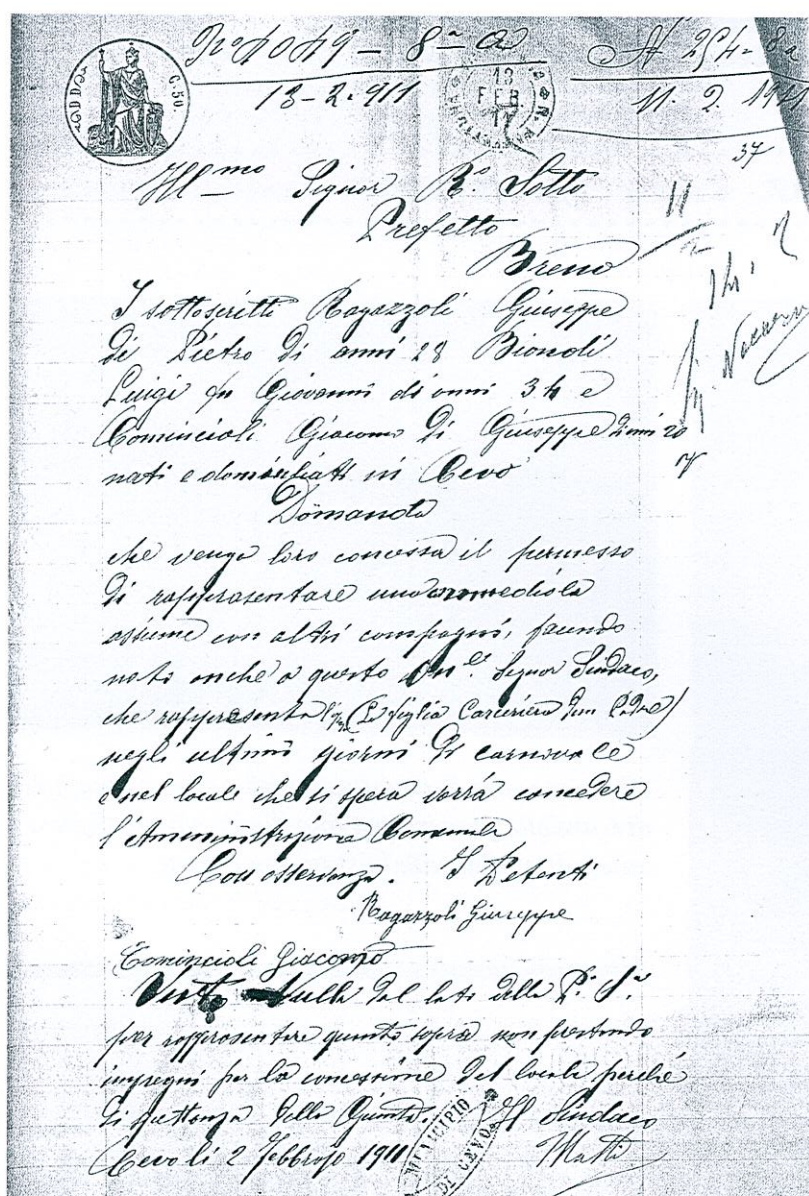 N° 4049 - 8ª a
N 254 - 8a
13-2-911
13
FEB.
11
11. 2. 1911
37
C. 50.
Ill mo Signor R.° Sotto
Prefetto
11
Breno
I sottoscritti Ragazzoli Giuseppe
di Pietro di anni 28 Biondi
Luigi fu Giovanni di anni 34 e
Comincioli Giacomo di Giuseppe d'anni 20
nati e domiciliati in Cevo
Domanda
che venga loro concessa il permesso
di rapprasentare una comediola
assieme con altri compagni, facendo
noto anche a questo On.le Signor Sindaco,
che rappresenta (La figlia Carceriera d'un Padre)
negli ultimi giorni di carnovale
e nel locale che si spera vorrà concedere
l'Amministrazione Comunale
Con osservanza. I Petenti
Ragazzoli Giuseppe
Comincioli Giacomo
Visto Nulla dal lato della P. S.
per rapprosentare quanto sopra non prendendo
impegni per la concessione del locale perchè
di spettanza della Giunta. Il Sindaco
Cevo li 2 Febbrajo 1911
MUNICIPIO
DI CEVO